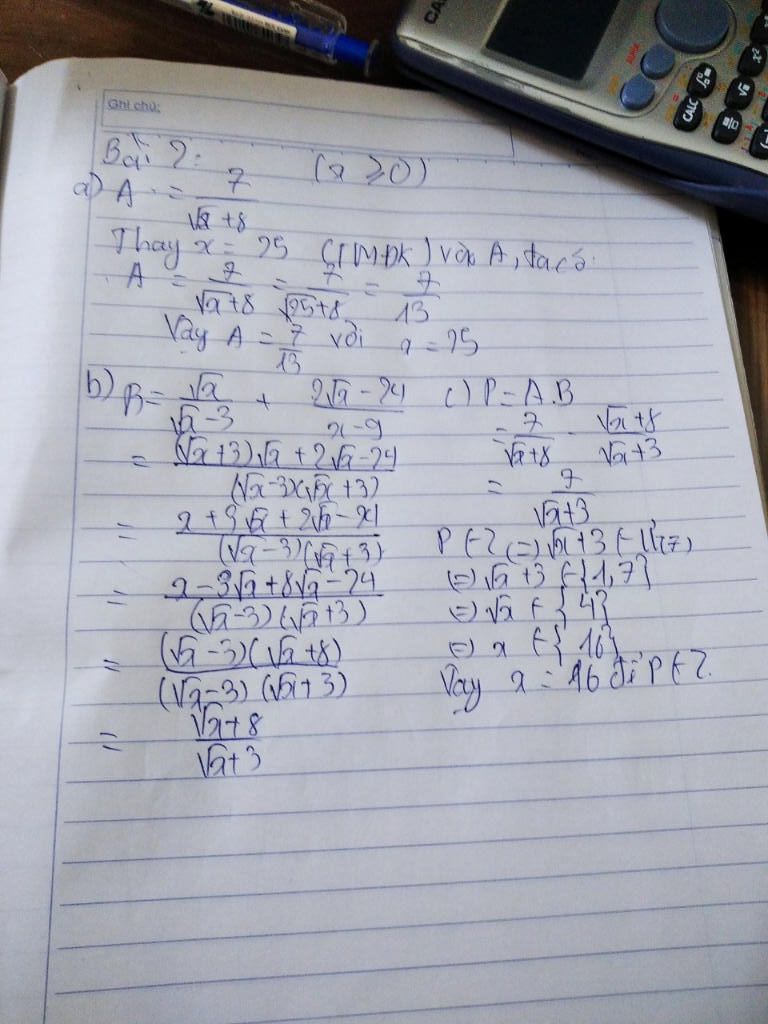 Ghi chú:
Bài 2: (x ≥ 0)
a) A = 7/(√x+8)
Thay x = 25 (TMĐK) vào A, ta có:
A = 7/(√x+8) = 7/(√25+8) = 7/13
Vậy A = 7/13 với x = 25
b) B = √x/(√x-3) + (2√x-24)/(x-9)
= ((√x+3)√x+2√x-24)/((√x-3)(√x+3))
= (x+3√x+2√x-24)/((√x-3)(√x+3))
= (x-3√x+8√x-24)/((√x-3)(√x+3))
= ((√x-3)(√x+8))/((√x-3)(√x+3))
= (√x+8)/(√x+3)
c) P = A.B
= 7/(√x+8) . (√x+8)/(√x+3)
= 7/(√x+3)
P ∈ Z (=) √x+3 ∈ Ư(7)
(=) √x+3 ∈ {1,7}
(=) √x ∈ {4}
(=) x ∈ {16}
Vậy x = 16 để P ∈ Z.
CALC
√x
x²